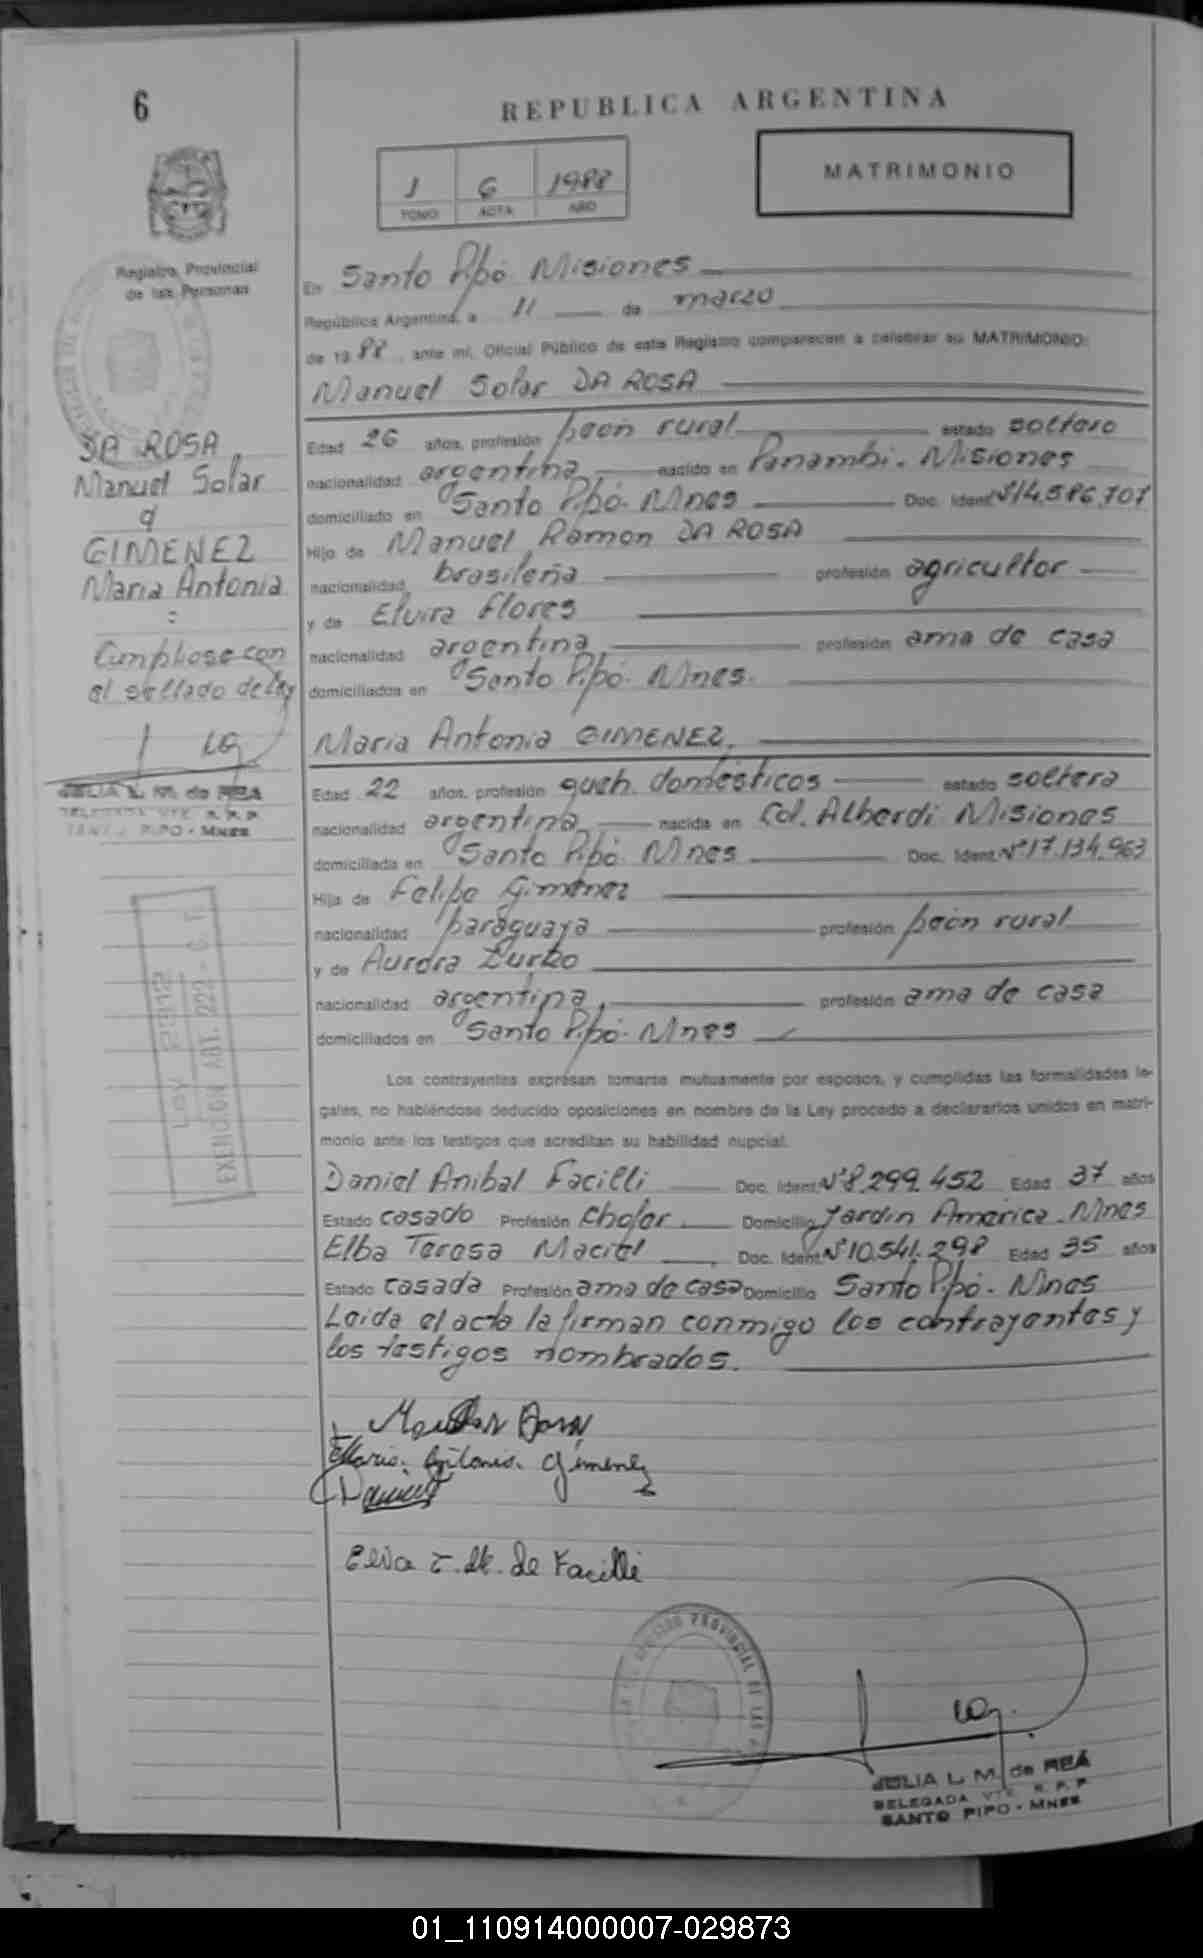 6
REPUBLICA ARGENTINA
1 6 1988
TOMO ACTA AÑO
MATRIMONIO
Registro Provincial
de las Personas
DA ROSA
Manuel Solar
y
GIMENEZ
Maria Antonia
=
Cumpliose con
el sellado de ley
JULIA L. M. de REA
DELEGADA VTE R. P. P.
SANTO PIPO - MNES
LEY 2912
EXENCION ART. 222 - C. F.
En Santo Pipó Misiones
República Argentina, a 11 de marzo
de 1988, ante mí, Oficial Público de este Registro comparecen a celebrar su MATRIMONIO:
Manuel Solar DA ROSA
Edad 26 años, profesión peón rural estado soltero
nacionalidad argentina nacido en Panambi. Misiones
domiciliado en Santo Pipó. Mnes Doc. Ident. Nº14.586.707
Hijo de Manuel Ramon DA ROSA
nacionalidad brasileña profesión agricultor
y de Elvira Flores
nacionalidad argentina profesión ama de casa
domiciliados en Santo Pipó. Mnes.
Maria Antonia GIMENEZ,
Edad 22 años, profesión queh. domésticos estado soltera
nacionalidad argentina nacida en Col. Alberdi Misiones
domiciliada en Santo Pipó. Mnes Doc. Ident. Nº17.134.963
Hija de Felipe Gimenez
nacionalidad paraguaya profesión peón rural
y de Aurora
nacionalidad argentina, profesión ama de casa
domiciliados en Santo Pipó. Mnes
Los contrayentes expresan tomarse mutuamente por esposos, y cumplidas las formalidades le-
gales, no habiéndose deducido oposiciones en nombre de la Ley procedo a declararlos unidos en matri-
monio ante los testigos que acreditan su habilidad nupcial.
Daniel Anibal Facilli Doc. Ident. Nº8.299.452 Edad 37 años
Estado casado Profesión Chofer Domicilio Jardin America. Mnes
Elba Teresa Maciel Doc. Ident. Nº10.541.298 Edad 35 años
Estado casada Profesión ama de casa Domicilio Santo Pipó. Mnes
Leida el acta la firman conmigo los contrayentes y
los testigos nombrados.
Maria Antonia Gimenez
Elva T. M. de Facilli
REGISTRO PROVINCIAL DE LAS
JULIA L. M. de REA
DELEGADA VTE R. P. P.
SANTO PIPO - MNES
01_110914000007-029873